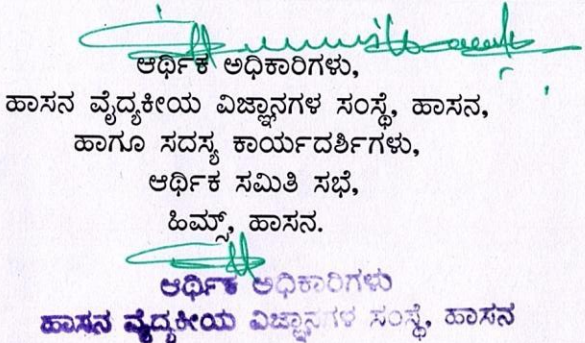 ಆರ್ಥಿಕ ಅಧಿಕಾರಿಗಳು,
ಹಾಸನ ವೈದ್ಯಕೀಯ ವಿಜ್ಞಾನಗಳ ಸಂಸ್ಥೆ, ಹಾಸನ,
ಹಾಗೂ ಸದಸ್ಯ ಕಾರ್ಯದರ್ಶಿಗಳು,
ಆರ್ಥಿಕ ಸಮಿತಿ ಸಭೆ,
ಹಿಮ್ಸ್, ಹಾಸನ.
ಆರ್ಥಿಕ ಅಧಿಕಾರಿಗಳು
ಹಾಸನ ವೈದ್ಯಕೀಯ ವಿಜ್ಞಾನಗಳ ಸಂಸ್ಥೆ, ಹಾಸನ